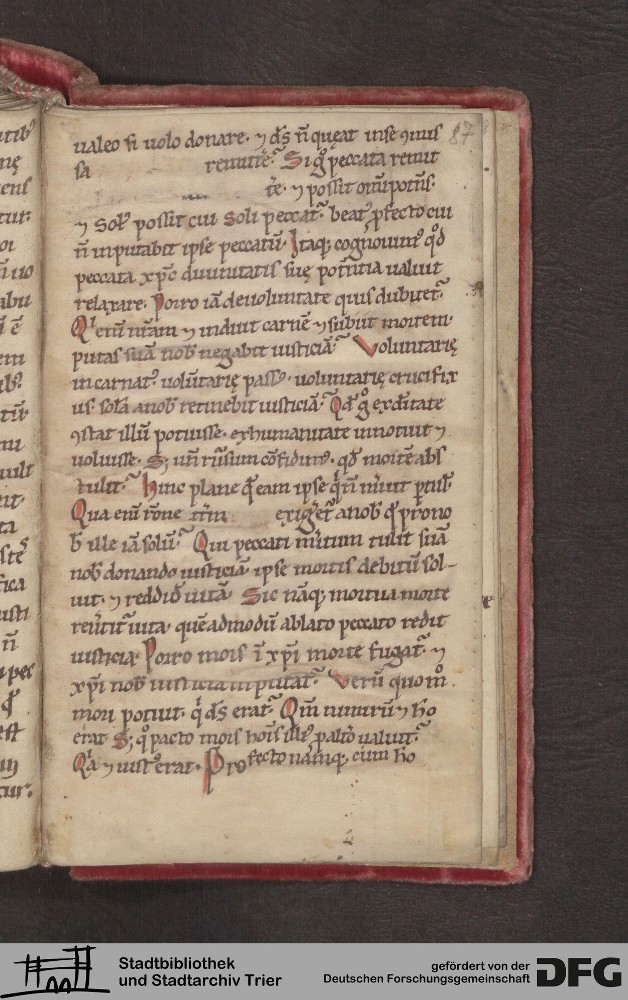 87
ualeo si uolo donare· ⁊ d̄s n̄ queat inse ɔmis
sa remitte͛· Si gͦ peccata remit
te· ⁊ possit om̄ipotn̄s·
⁊ Solꝰ possit cui Soli peccat᷑· beatꝰ ꝓfecto cui
n̄ inputabit ipse peccatū· Itaq; cognouim᷒ qd̄
peccata xp̄c diuinitatis suę potn̄tia ualuit
relaxare· Porro iā deuoluntate quis dubitet·
Qⁱ enī nr̄am ⁊ induit carnē ⁊ subiit mortem·
putas suā nob̄ negabit iusticiā· Voluntarię
incarnatꝰ uolūtarię passꝰ· uoluntarię crucifix
us· solā anob̄ retinebit iusticiā· Qd̄ gͦ exdītate
ɔstat illū potuisse· exhumanitate innotuit ⁊
uoluisse· S; un̄ rūsum cōfidimꝰ· qd̄ mortē abs
tulit· hinc plane q̄ eam ipse q̄ n̄ meruit ptul᷑·
Qua enī rōne exiget᷑ anob̄ qd̄ ꝓ no
b̄ ille iā soluit· Qui peccati m̄itum tulit suā
nob̄ donando iusticiā· ipse mortis debitū sol-
uit· ⁊ reddid̄ uitā· Sic nāq; mortua morte
reūtit᷑ uita· quēadmodū ablato peccato redit
iusticia· Porro mors ī xp̄i morte fugat᷑· ⁊
xp̄i nob̄ iusticia inputat᷑· Verū quo mͦ
mori potuit· qͥ d̄s erat· Qm̄ nimirū ⁊ ho
erat· S; qͦ pacto mors hoīs illiꝰ ꝓ alt͛o ualuit·
Qⁱa ⁊ iustꝰ erat· Profecto nāq; cum ho
Stadtbibliothek
und Stadtarchiv Trier
gefördert von der
Deutschen Forschungsgemeinschaft
DFG